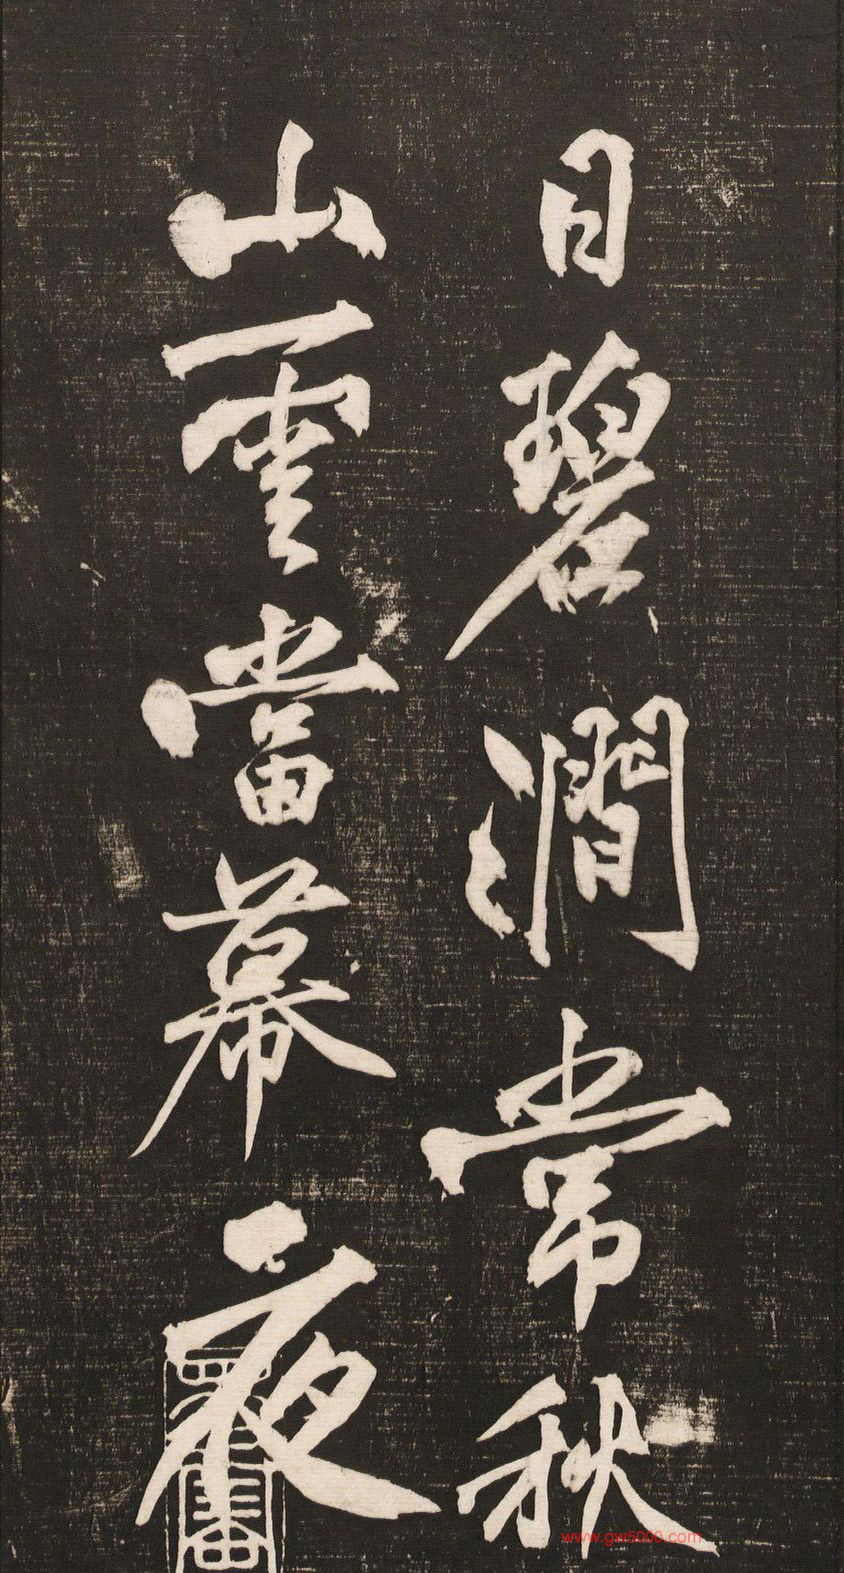 日碧澗常秋
山雲當幕夜
www.gw5000.com